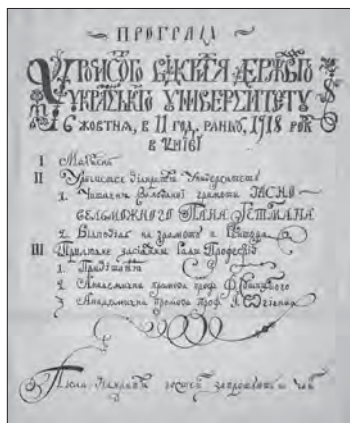 ПРОГРАМА
УРОЧИСТОГО ВІДКРИТТЯ ДЕРЖАВНОГО
УКРАЇНСЬКОГО УНІВЕРСИТЕТУ
6 ЖОВТНЯ, в 11 год. РАНКУ, 1918 РОКУ
в КИЇВІ
I Молебень
II Урочисте відкриття Університету
1. Читання грамоти ЯСНО-
ВЕЛЬМОЖНОГО ПАНА ГЕТМАНА
2. Відповідь на грамоту п. Ректора
III Прилюдне засідання Ради Професорів
1. Привітання
2. Академична промова проф.
3. Академична промова проф. І. Огієнка
Після відкриття гостей запрошують на чай